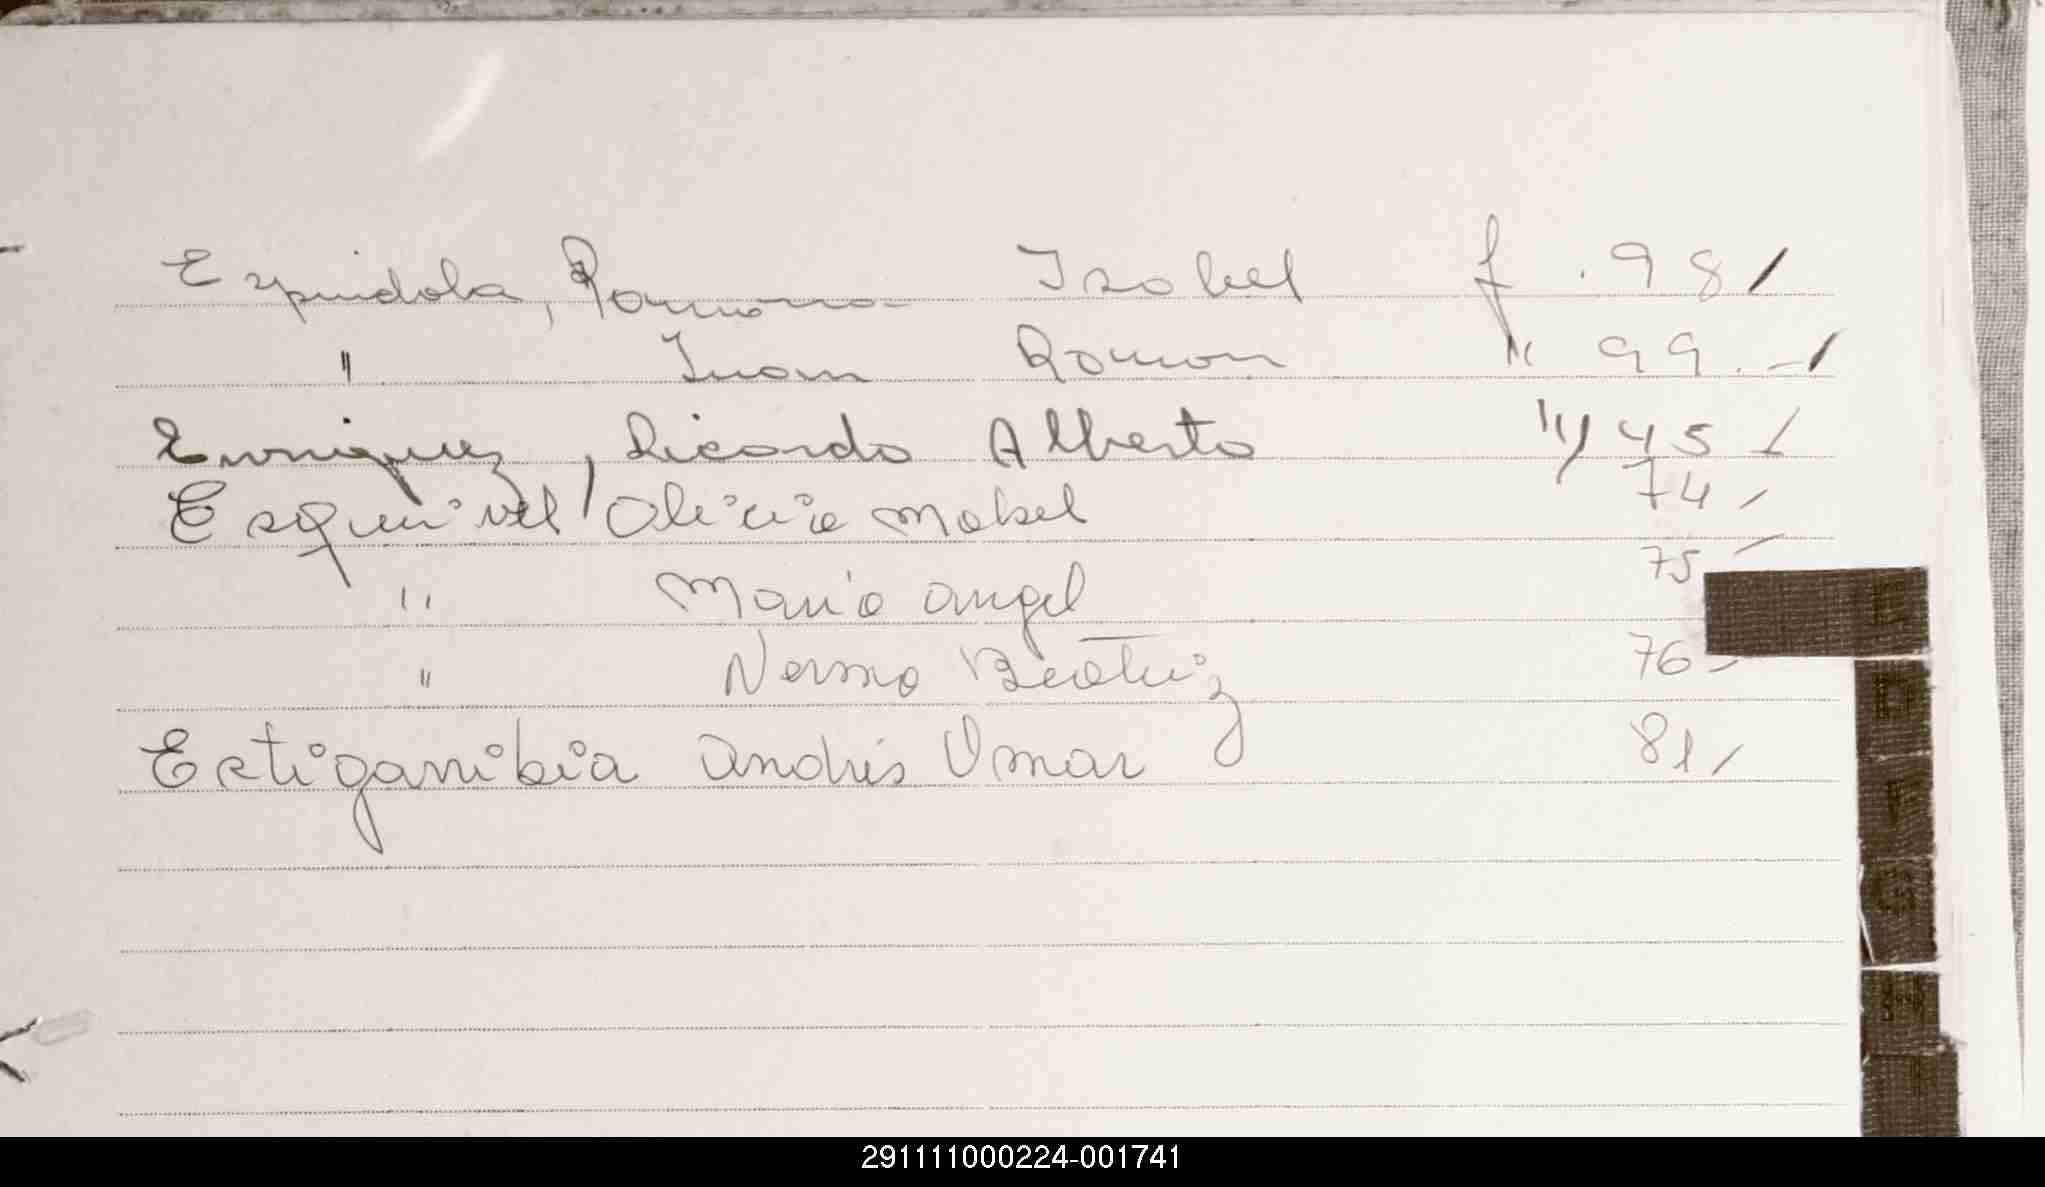 Espindola, Ramona Isabel f. 98/
" Juan Ramon " 99.-/
Enriquez, Ricardo Alberto " 45 /
Esquivel, Alicia Mabel 74 /
" Mario Angel 75 /
" Norma Beatriz 76 -
Estigarribia Andrés Omar 81 /
E
D
F
G
H
I
291111000224-001741